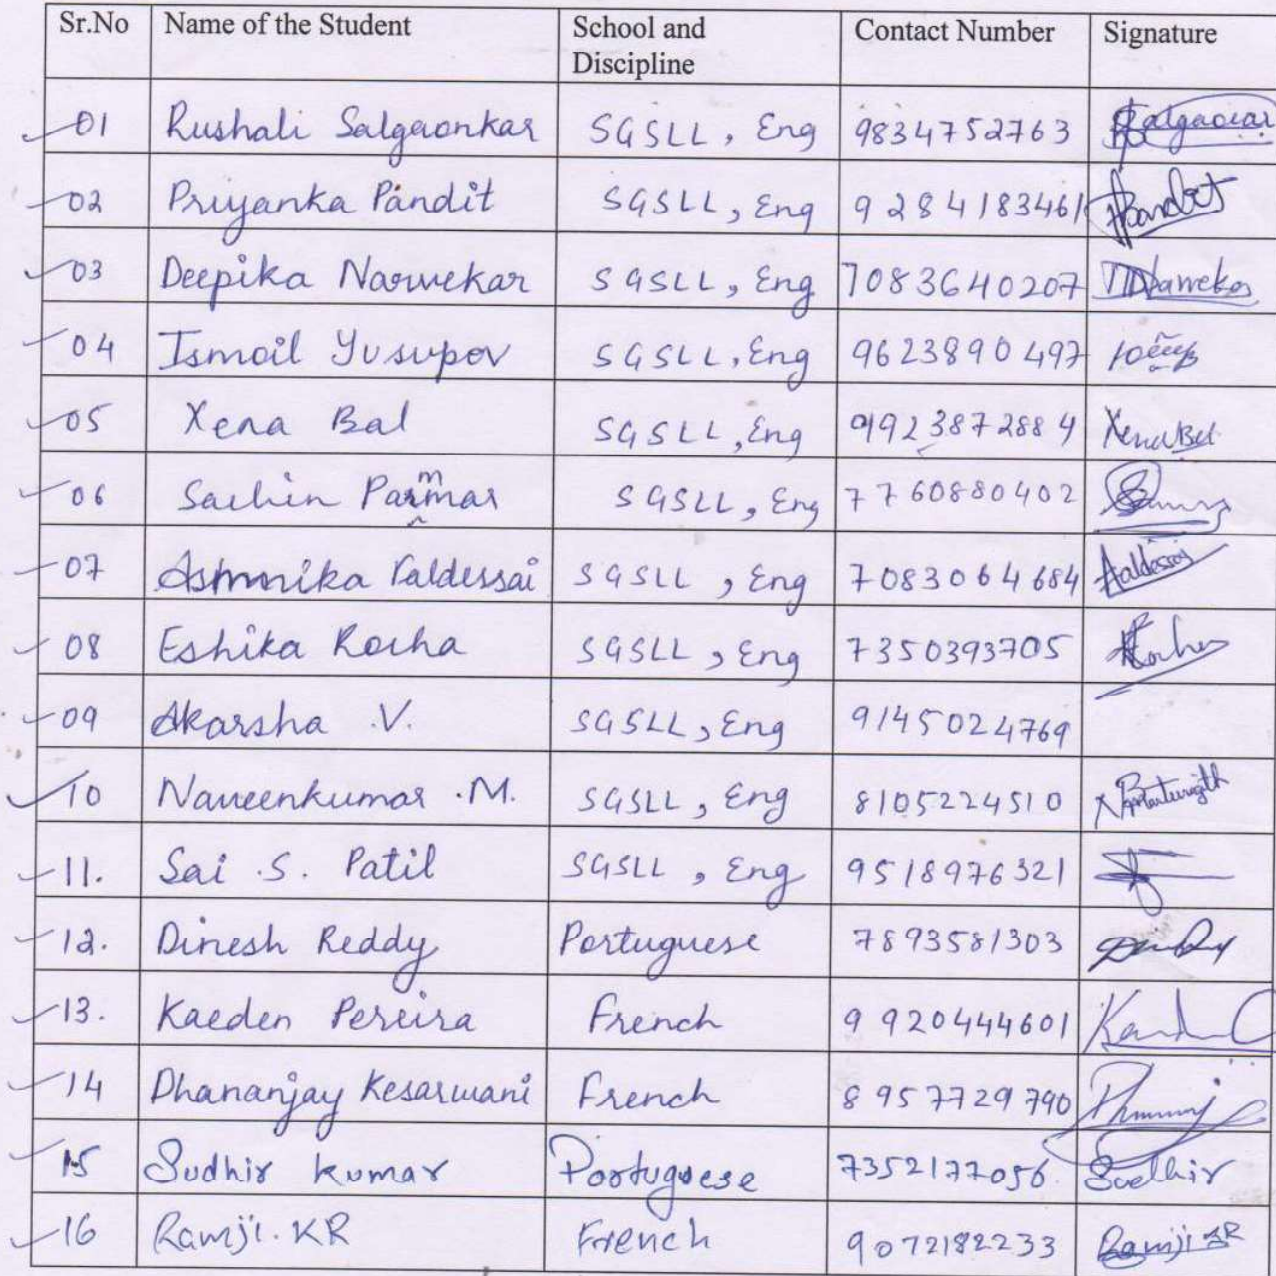 Sr.No Name of the Student School and Discipline Contact Number Signature
01 Rushali Salgaonkar SGSLL, Eng 9834752763 Salgaocar
02 Priyanka Pandit SGSLL, Eng 9284183461
03 Deepika Narvekar SGSLL, Eng 7083640207
04 Ismoil Yusupov SGSLL, Eng 9623890497
05 Xena Bal SGSLL, Eng 9923872884 Xena Bal
06 Sachin Parmar SGSLL, Eng 7760880402
07 Ashmika Faldessai SGSLL, Eng 7083064684
08 Eshika Rocha SGSLL, Eng 7350393705
09 Akarsha .V. SGSLL, Eng 9145024769
10 Naveenkumar .M. SGSLL, Eng 8105224510
11. Sai .S. Patil SGSLL, Eng 9518976321
12. Dinesh Reddy Portuguese 7893581303
13. Kaeden Pereira French 9920444601
14 Dhananjay Kesarwani French 8957729790
15 Sudhir kumar Portuguese 7352177056. Sudhir
16 Ramji. KR French 9072182233 Ramji KR